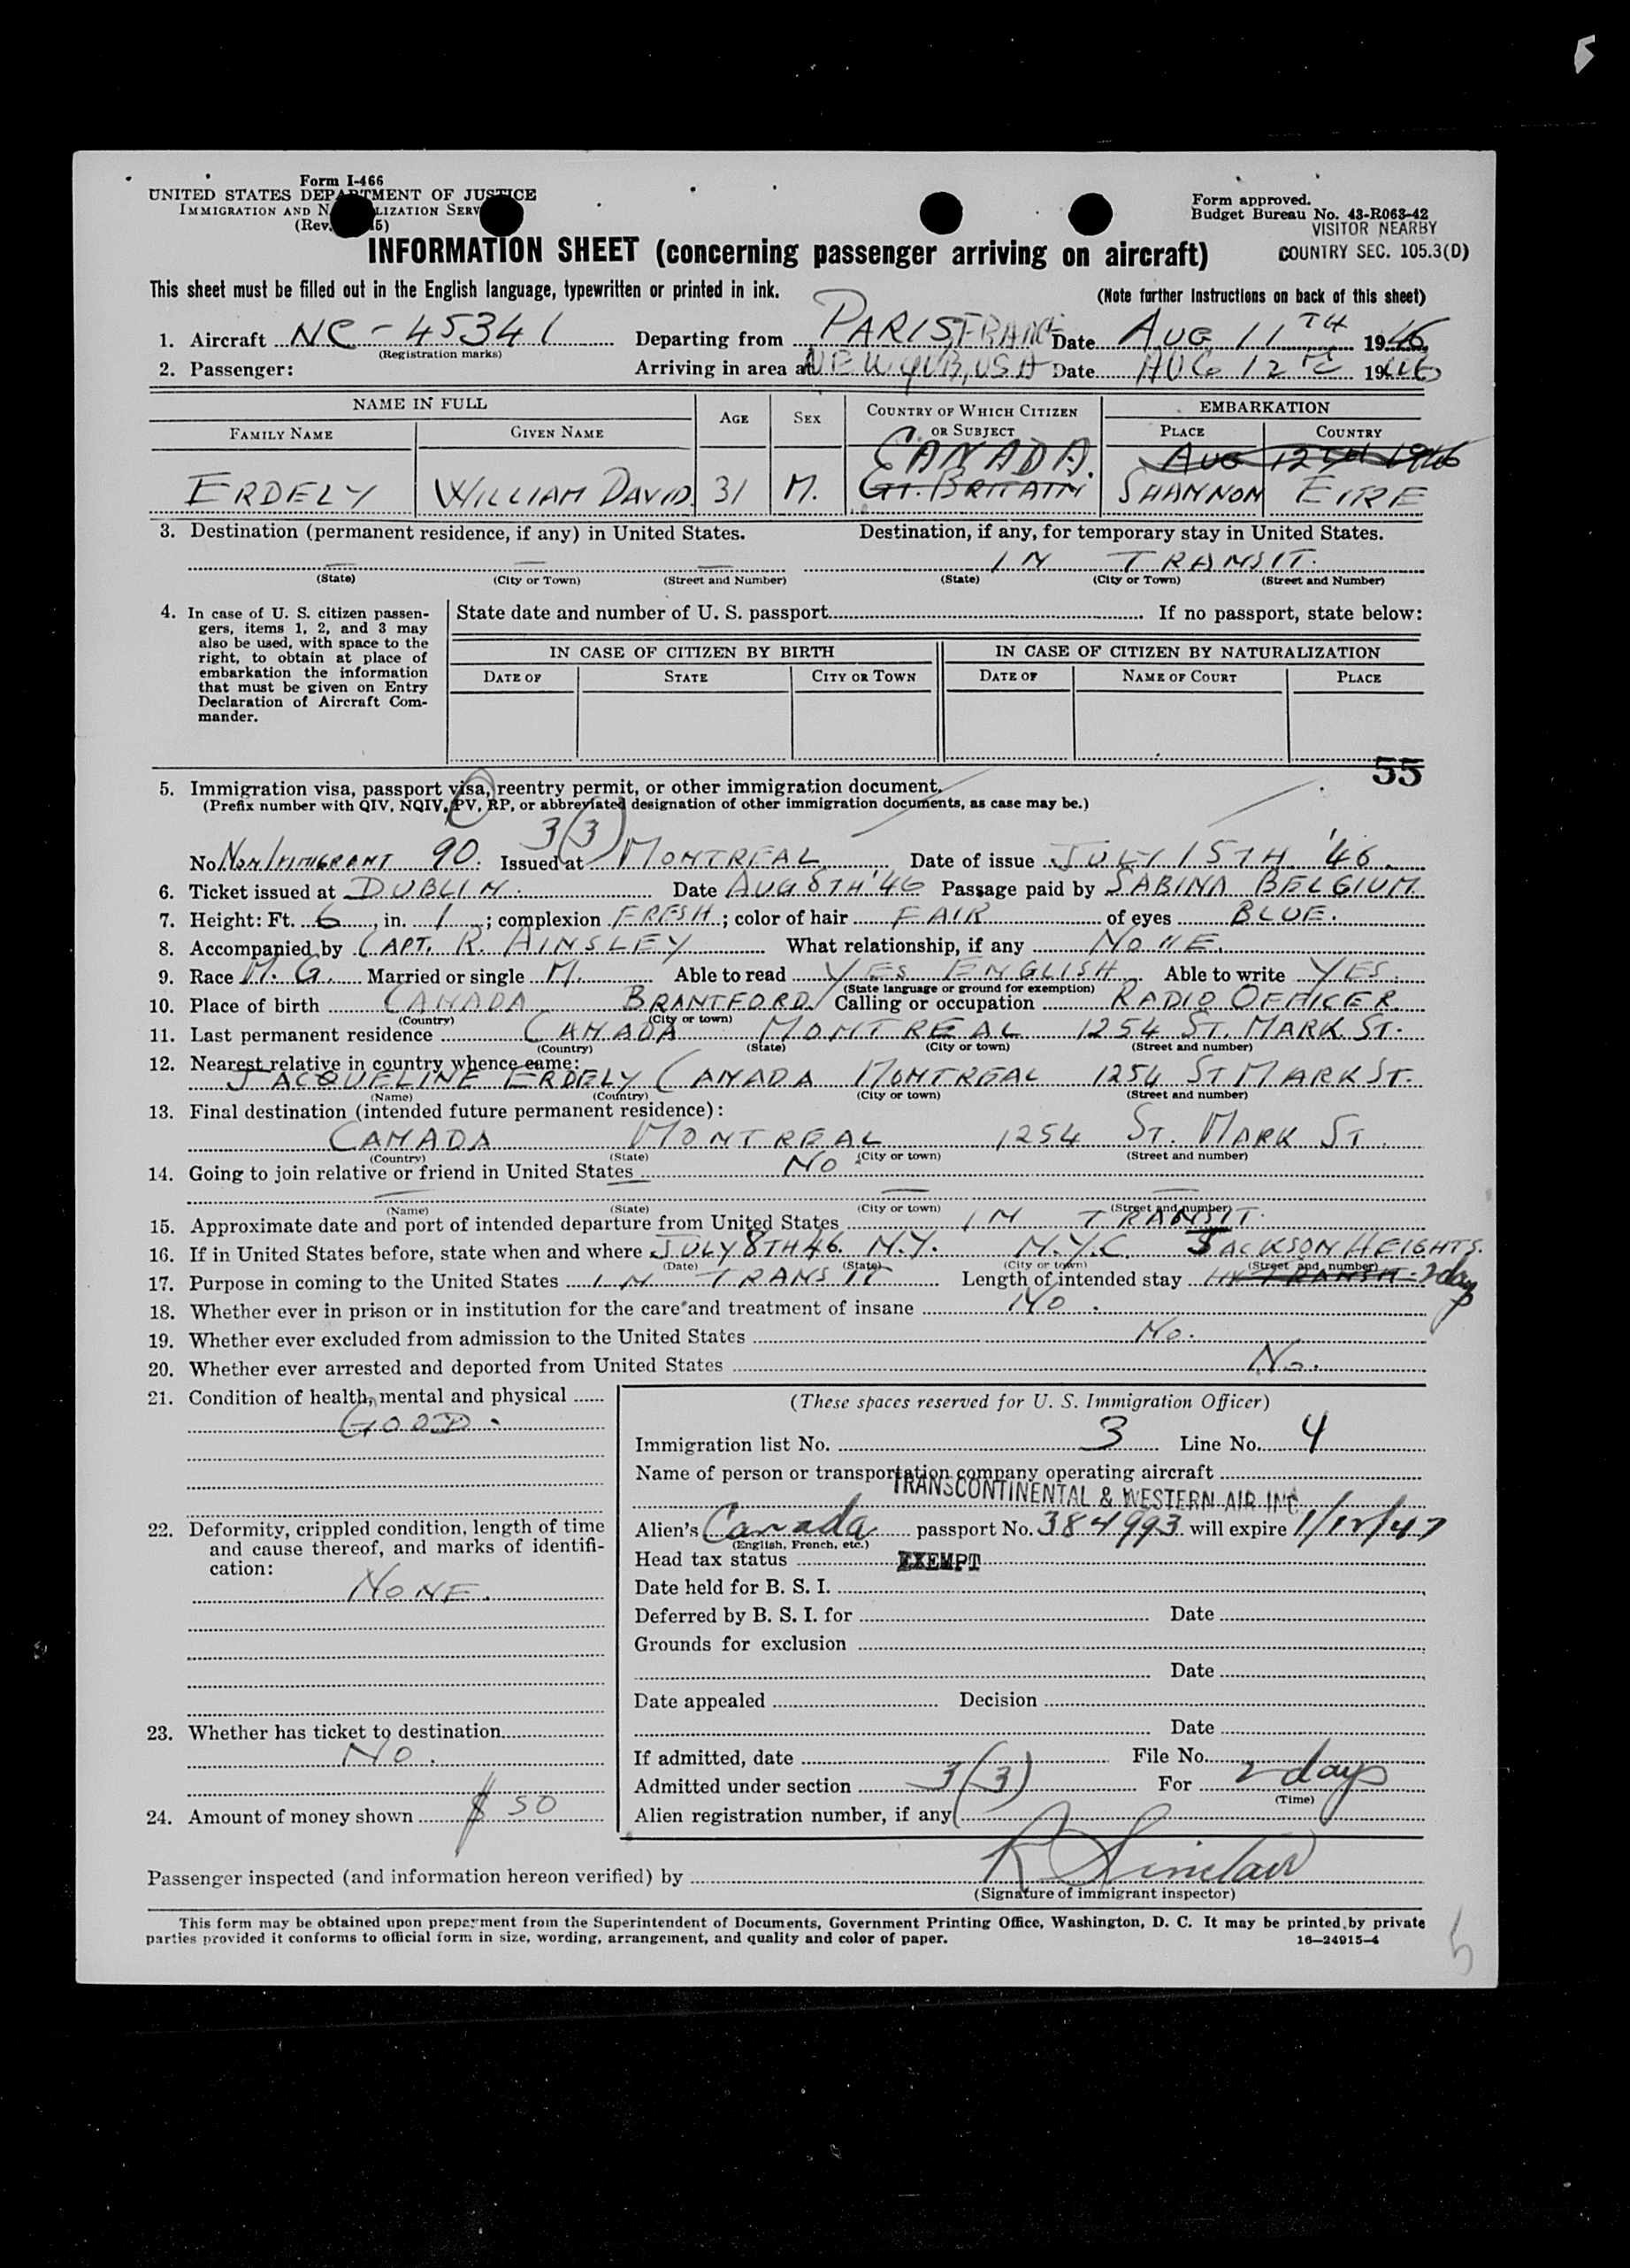 Form I-466
UNITED STATES DEPARTMENT OF JUSTICE
IMMIGRATION AND N LIZATION SERV
(Rev. 5)
Form approved.
Budget Bureau No. 43-R063-42
VISITOR NEARBY
COUNTRY SEC. 105.3(D)
INFORMATION SHEET (concerning passenger arriving on aircraft)
This sheet must be filled out in the English language, typewritten or printed in ink.
(Note further instructions on back of this sheet)
1. Aircraft NC-45341 Departing from PARIS, FRANCE Date AUG 11TH 1946
(Registration marks)
2. Passenger: Arriving in area at Date AUG 12 1946
NAME IN FULL AGE SEX COUNTRY OF WHICH CITIZEN OR SUBJECT EMBARKATION
FAMILY NAME GIVEN NAME PLACE COUNTRY
CANADA. AUG 12TH 1946
ERDELY WILLIAM DAVID 31 M. GT. BRITAIN SHANNON EIRE
3. Destination (permanent residence, if any) in United States. Destination, if any, for temporary stay in United States.
— — — IN TRANSIT.
(State) (City or Town) (Street and Number) (State) (City or Town) (Street and Number)
4. In case of U. S. citizen passen-
gers, items 1, 2, and 3 may
also be used, with space to the
right, to obtain at place of
embarkation the information
that must be given on Entry
Declaration of Aircraft Com-
mander.
State date and number of U. S. passport If no passport, state below:
IN CASE OF CITIZEN BY BIRTH IN CASE OF CITIZEN BY NATURALIZATION
DATE OF STATE CITY OR TOWN DATE OF NAME OF COURT PLACE
55
5. Immigration visa, passport visa, reentry permit, or other immigration document.
(Prefix number with QIV, NQIV, PV, RP, or abbreviated designation of other immigration documents, as case may be.)
3(3)
No. NON IMMIGRANT 90. Issued at MONTREAL Date of issue JULY 15TH '46.
6. Ticket issued at DUBLIN. Date AUG 8TH '46 Passage paid by SABINA BELGIUM
7. Height: Ft. 6, in. 1; complexion FRESH; color of hair FAIR of eyes BLUE.
8. Accompanied by CAPT. R. AINSLEY What relationship, if any NONE.
9. Race M. G. Married or single M. Able to read YES ENGLISH Able to write YES.
(State language or ground for exemption)
10. Place of birth CANADA BRANTFORD Calling or occupation RADIO OFFICER.
(Country) (City or town)
11. Last permanent residence CANADA MONTREAL 1254 ST. MARK ST.
(Country) (State) (City or town) (Street and number)
12. Nearest relative in country whence came:
JACQUELINE ERDELY CANADA MONTREAL 1254 ST MARK ST.
(Name) (Country) (City or town) (Street and number)
13. Final destination (intended future permanent residence):
CANADA MONTREAL 1254 ST. MARK ST.
(Country) (State) (City or town) (Street and number)
14. Going to join relative or friend in United States NO
— — —
(Name) (State) (City or town) (Street and number)
15. Approximate date and port of intended departure from United States IN TRANSIT.
16. If in United States before, state when and where JULY 8TH 46. N.Y. N.Y.C. JACKSON HEIGHTS.
(Date) (State) (City or town) (Street and number)
17. Purpose in coming to the United States IN TRANSIT Length of intended stay IN TRANSIT - 2 days
18. Whether ever in prison or in institution for the care and treatment of insane NO.
19. Whether ever excluded from admission to the United States No.
20. Whether ever arrested and deported from United States No.
21. Condition of health, mental and physical
GOOD.
22. Deformity, crippled condition, length of time
and cause thereof, and marks of identifi-
cation:
NONE.
23. Whether has ticket to destination
NO.
24. Amount of money shown $ 50
(These spaces reserved for U. S. Immigration Officer)
Immigration list No. 3 Line No. 4
Name of person or transportation company operating aircraft
TRANSCONTINENTAL & WESTERN AIR INC
Alien's Canada passport No. 384993 will expire 1/12/47
(English, French, etc.)
Head tax status EXEMPT
Date held for B. S. I.
Deferred by B. S. I. for Date
Grounds for exclusion
Date
Date appealed Decision
Date
If admitted, date File No.
Admitted under section 3(3) For 2 days
(Time)
Alien registration number, if any
Passenger inspected (and information hereon verified) by R Sinclair
(Signature of immigrant inspector)
This form may be obtained upon prepayment from the Superintendent of Documents, Government Printing Office, Washington, D. C. It may be printed by private
parties provided it conforms to official form in size, wording, arrangement, and quality and color of paper. 16—24915-4
5